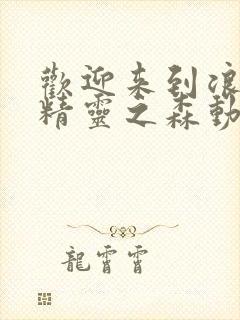 歡迎来到浪
精靈之森動
龍霄霄